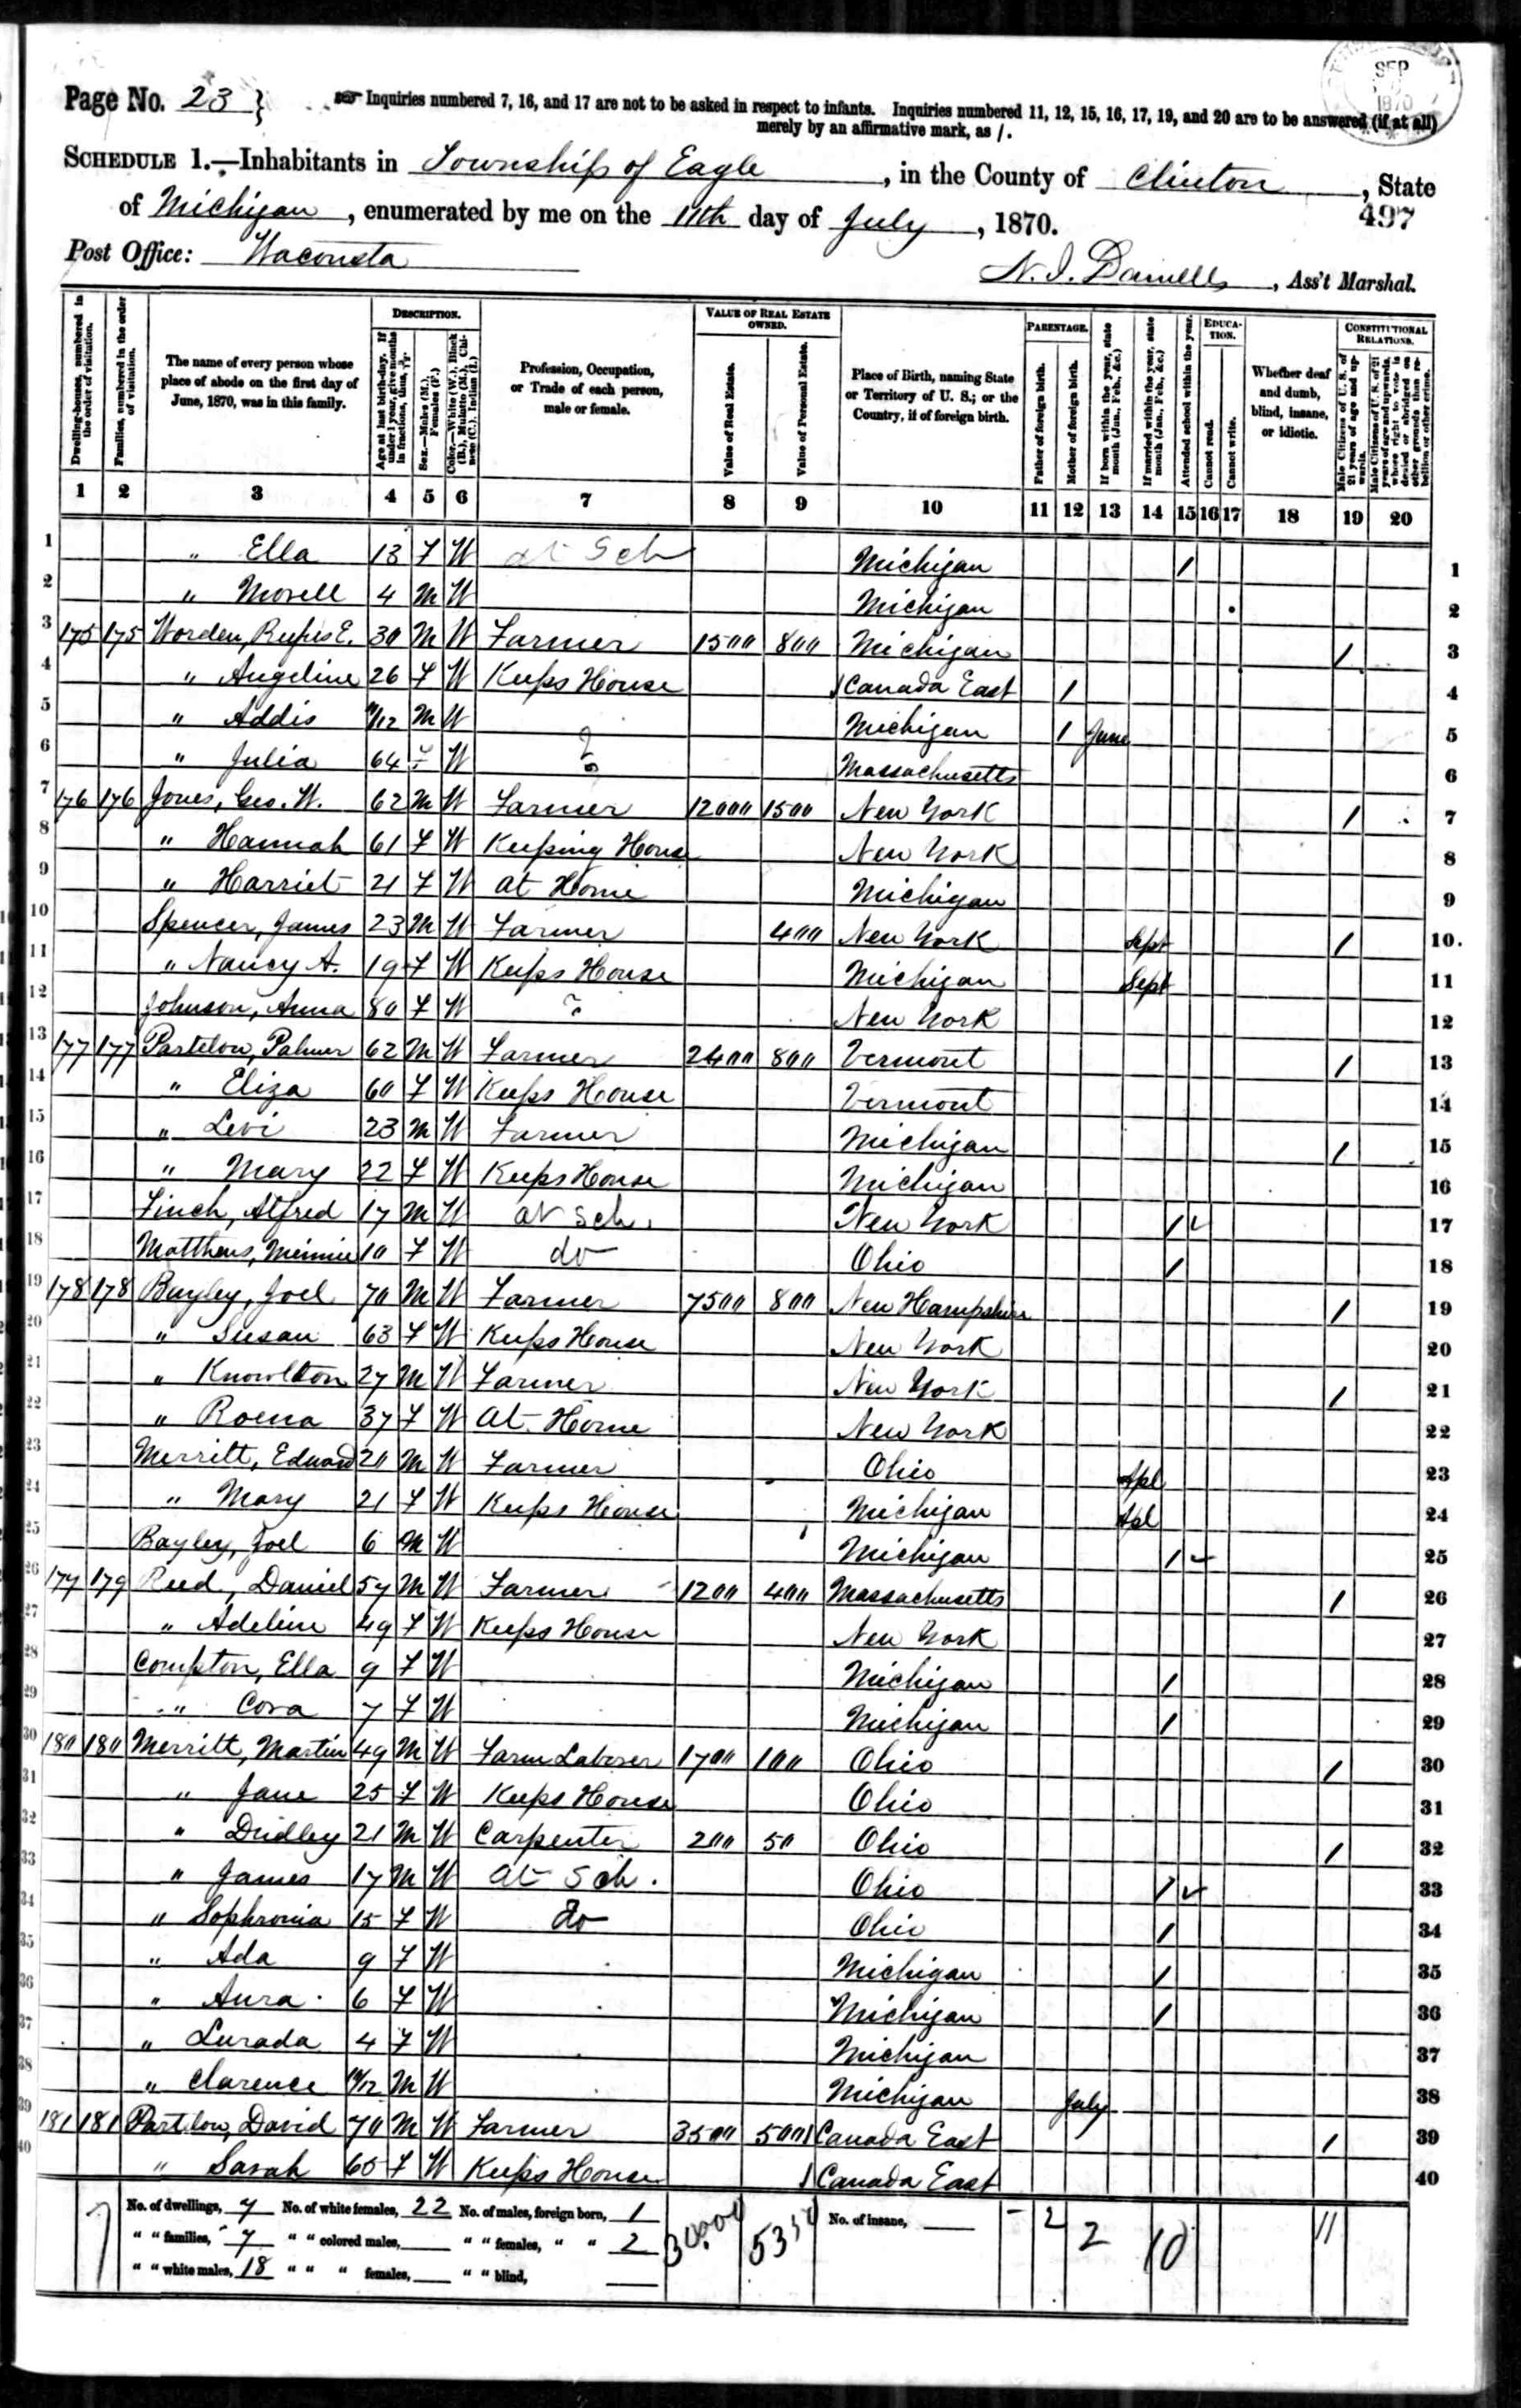 Page No. 23 } Inquiries numbered 7, 16, and 17 are not to be asked in respect to infants. Inquiries numbered 11, 12, 15, 16, 17, 19, and 20 are to be answered (if at all)
merely by an affirmative mark, as /.
SEP
1870
SCHEDULE 1.—Inhabitants in Township of Eagle, in the County of Clinton, State
of Michigan, enumerated by me on the 11th day of July, 1870.
497
Post Office: Waconsta
N. I. Daniells, Ass't Marshal.
Dwelling-houses, numbered in the order of visitation.
Families, numbered in the order of visitation.
The name of every person whose place of abode on the first day of June, 1870, was in this family.
DESCRIPTION.
Age at last birth-day. If under 1 year, give months in fractions, thus,
Sex.—Males (M.), Females (F.)
Color.—White (W.), Black (B.), Mulatto (M.), Chinese (C.), Indian (I.)
Profession, Occupation, or Trade of each person, male or female.
VALUE OF REAL ESTATE OWNED.
Value of Real Estate.
Value of Personal Estate.
Place of Birth, naming State or Territory of U. S.; or the Country, if of foreign birth.
PARENTAGE.
Father of foreign birth.
Mother of foreign birth.
If born within the year, state month (Jan., Feb., &c.)
If married within the year, state month (Jan., Feb., &c.)
Attended school within the year.
EDUCATION.
Cannot read.
Cannot write.
Whether deaf and dumb, blind, insane, or idiotic.
CONSTITUTIONAL RELATIONS.
Male Citizens of U. S. of 21 years of age and upwards.
Male Citizens of U. S. of 21 years of age and upwards, whose right to vote is denied or abridged on other grounds than rebellion or other crime.
1 2 3 4 5 6 7 8 9 10 11 12 13 14 15 16 17 18 19 20
1 " Ella 13 F W at Sch Michigan / 1
2 " Morell 4 M W Michigan 2
3 175 175 Worden, Rufus E. 30 M W Farmer 1500 800 Michigan / 3
4 " Angeline 26 F W Keeps House / Canada East / 4
5 " Addis /12 M W Michigan / June 5
6 " Julia 64 F W ? Massachusetts 6
7 176 176 Jones, Geo. W. 62 M W Farmer 12000 1500 New York / 7
8 " Hannah 61 F W Keeping House New York 8
9 " Harriet 21 F W At Home Michigan 9
10 Spencer, James 23 M W Farmer 400 New York Sept / 10.
11 " Nancy A. 19 F W Keeps House Michigan Sept 11
12 Johnson, Anna 80 F W ? New York 12
13 177 177 Partelow, Palmer 62 M W Farmer 2400 800 Vermont / 13
14 " Eliza 60 F W Keeps House Vermont 14
15 " Levi 23 M W Farmer Michigan / 15
16 " Mary 22 F W Keeps House Michigan 16
17 Finch, Alfred 17 M W at sch. New York / ✓ 17
18 Matthews, Minnie 10 F W do Ohio / 18
19 178 178 Bayley, Joel 70 M W Farmer 7500 800 New Hampshire / 19
20 " Susan 63 F W Keeps House New York 20
21 " Knowlton 27 M W Farmer New York / 21
22 " Roena 37 F W At Home New York 22
23 Merritt, Edward 20 M W Farmer Ohio Apl 23
24 " Mary 21 F W Keeps House Michigan Apl 24
25 Bayley, Joel 6 M W Michigan / ✓ 25
26 179 179 Reed, Daniel 57 M W Farmer 1200 400 Massachusetts / 26
27 " Adeline 49 F W Keeps House New York 27
28 Compton, Ella 9 F W Michigan / 28
29 " Cora 7 F W Michigan / 29
30 180 180 Merritt, Martin 49 M W Farm Laborer 1700 100 Ohio / 30
31 " Jane 25 F W Keeps House Ohio 31
32 " Dudley 21 M W Carpenter 200 50 Ohio / 32
33 " James 17 M W At Sch. Ohio / ✓ 33
34 " Sophronia 15 F W do Ohio / 34
35 " Ada 9 F W Michigan / 35
36 " Aura 6 F W Michigan / 36
37 " Lurada 4 F W Michigan 37
38 " Clarence /12 M W Michigan July 38
39 181 181 Partelow, David 70 M W Farmer 3500 500 / Canada East / 39
40 " Sarah 65 F W Keeps House / Canada East 40
No. of dwellings, 7 No. of white females, 22 No. of males, foreign born, 1 No. of insane,
" " families, 7 " " colored males, " " females, " " 2 30,000 5350 2 2 10 11
" " white males, 18 " " " females, " " blind,